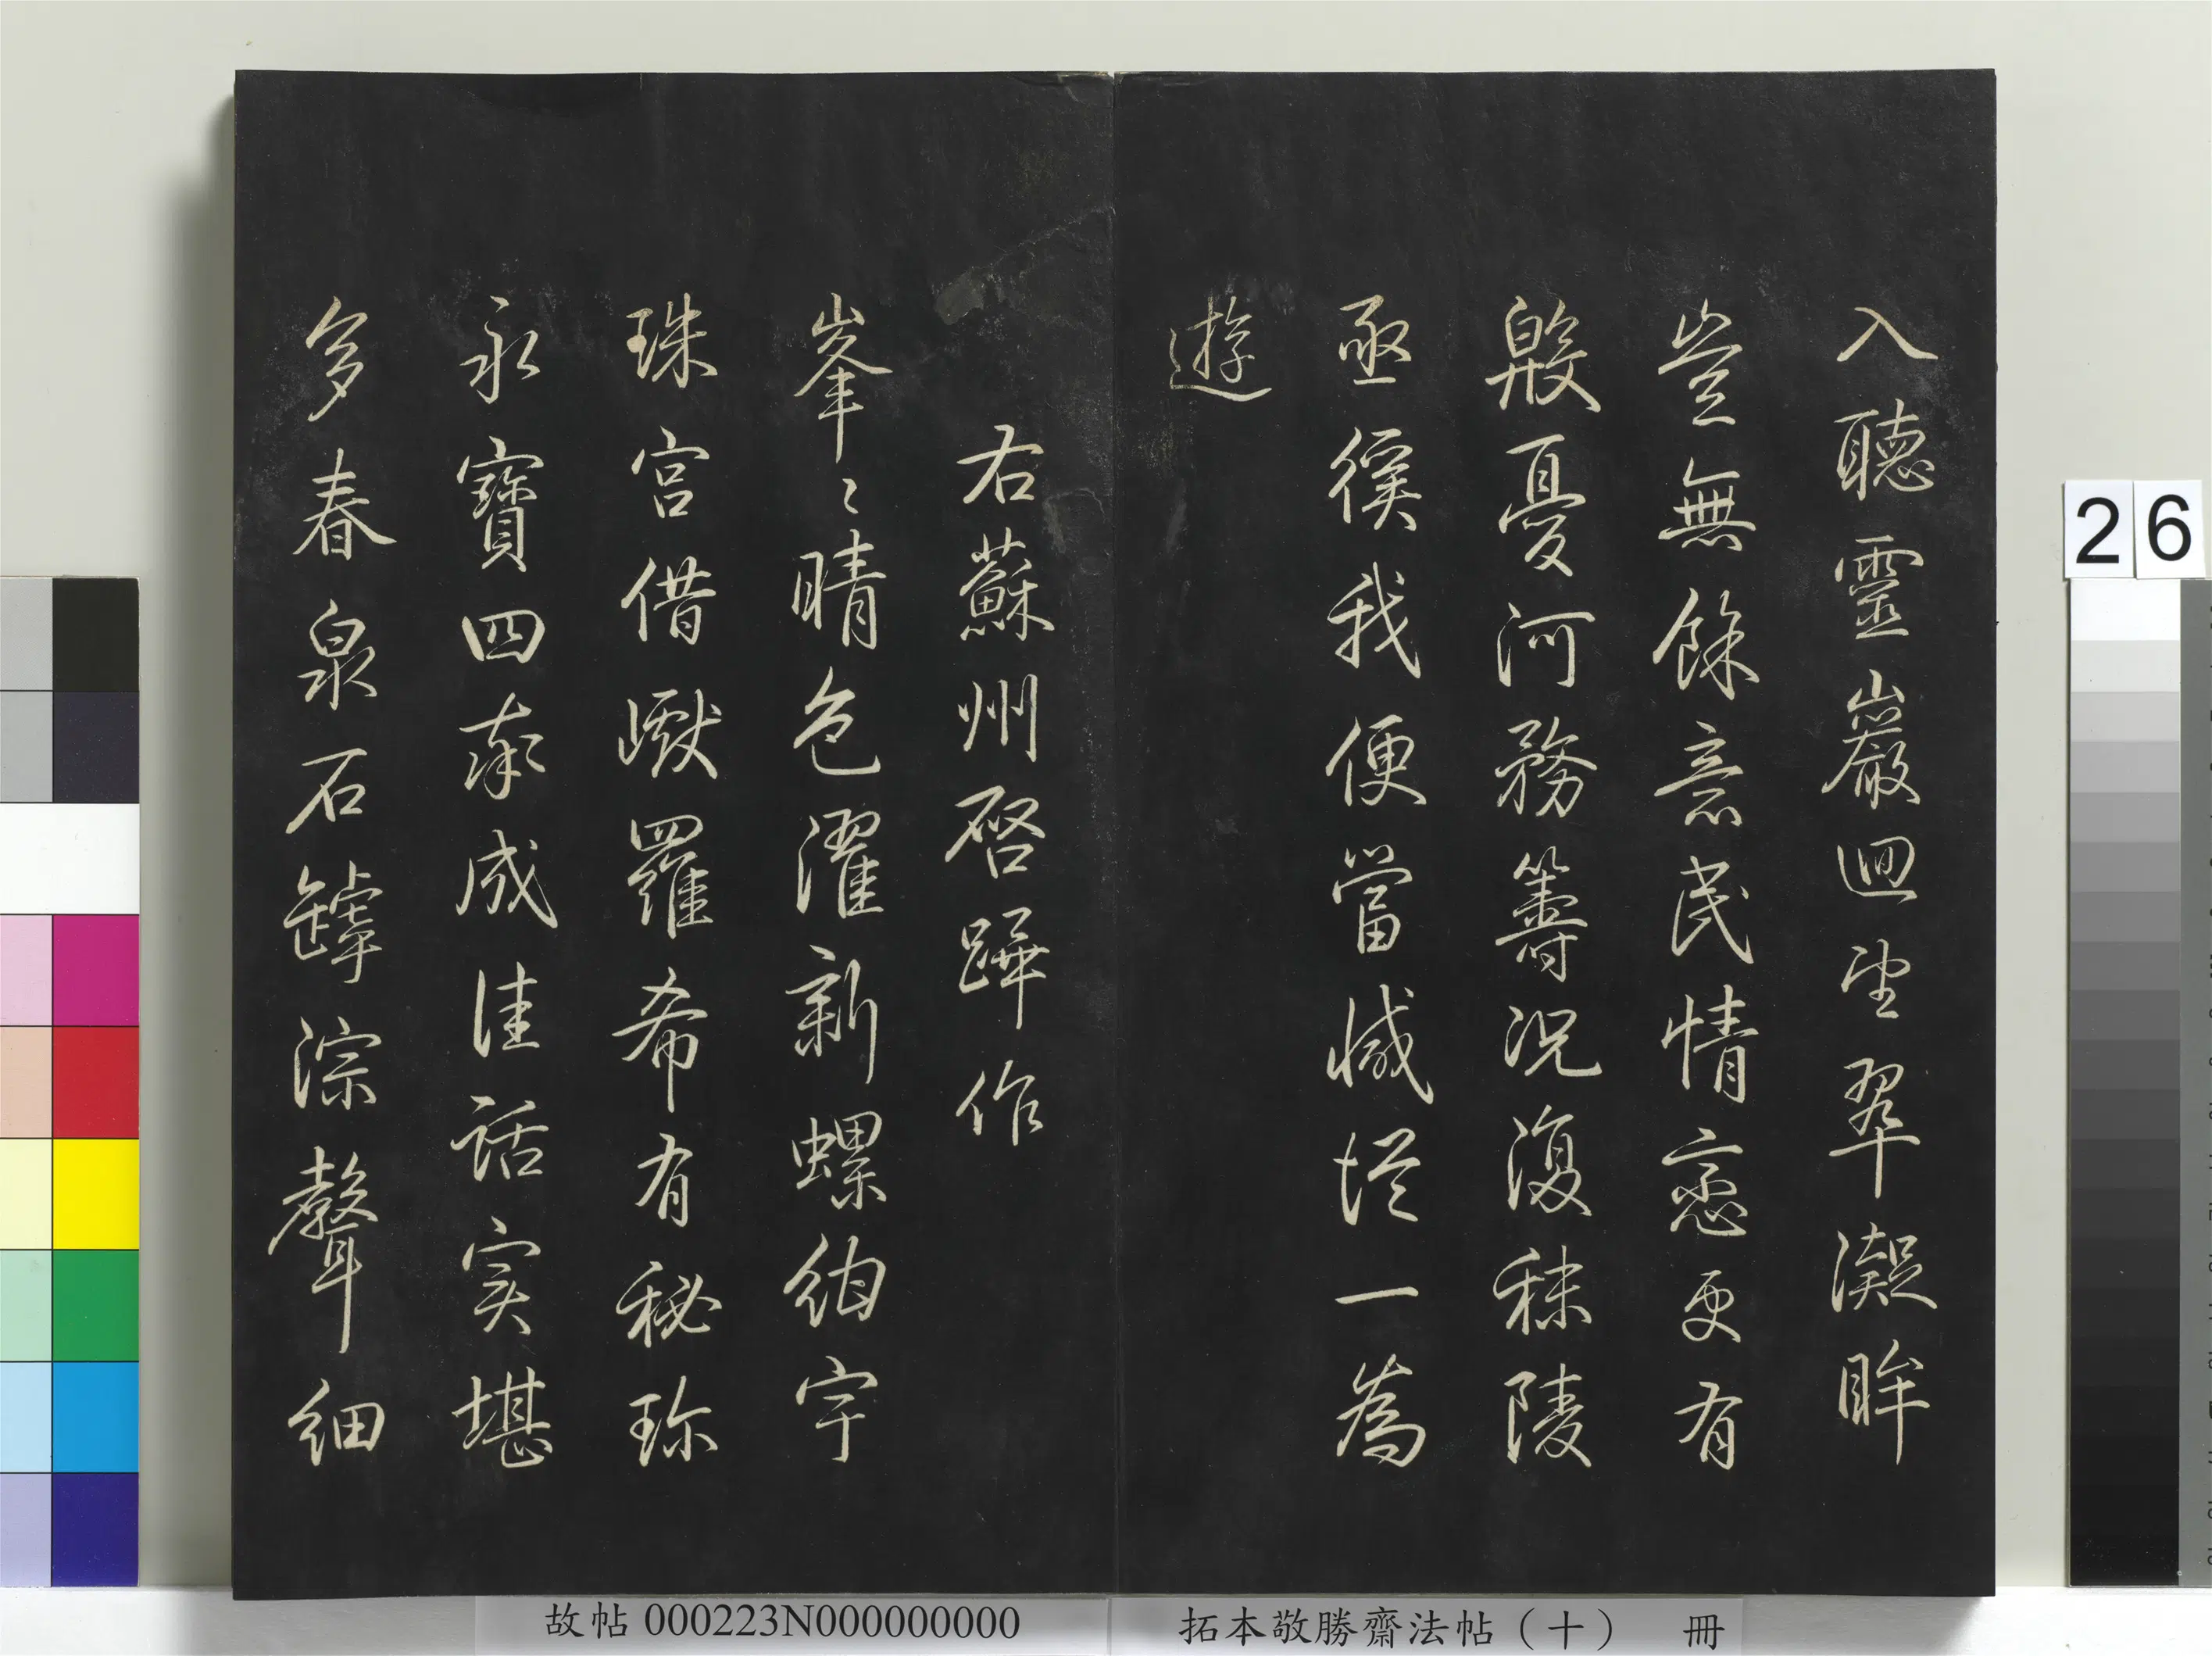 入聽靈巖迴望翠凝眸
豈無餘意民情戀更有
殷憂河務籌況復秣陵
亟徯我便當減從一為
遊
右蘇州啓蹕作
峯〻晴色濯新螺紺宇
珠宮借巘羅希有秘珍
永寶四泰成佳話实堪
多春泉石罅淙聲細
26
故帖 000223N000000000
拓本敬勝齋法帖（十） 冊